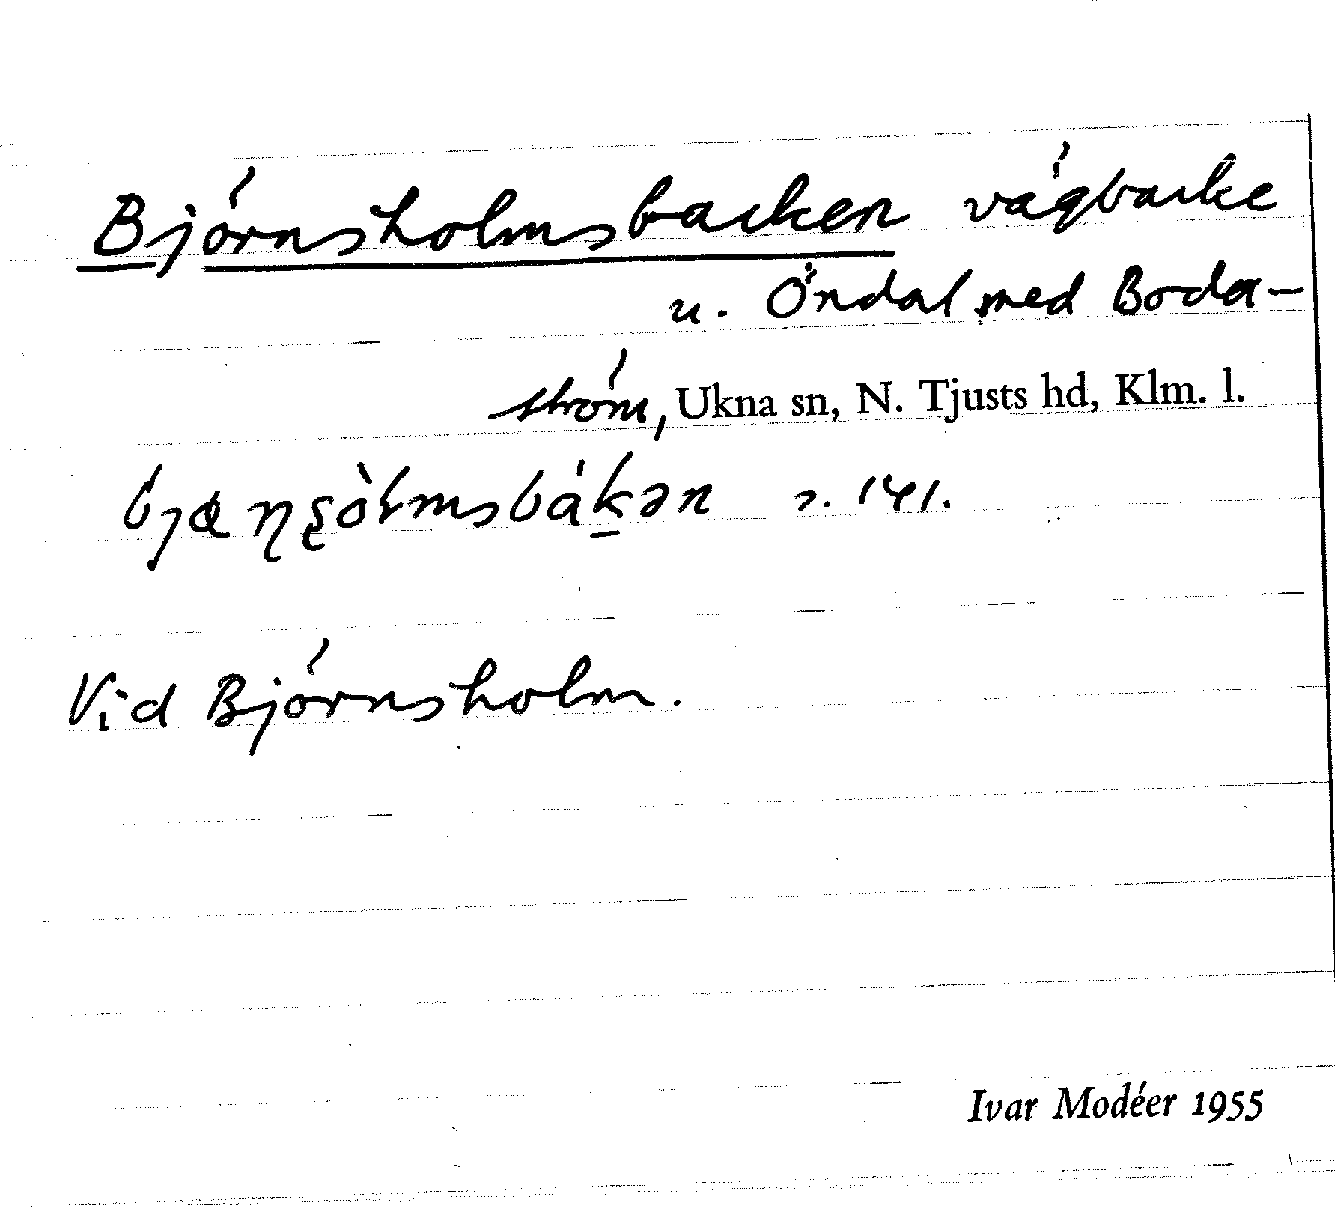 Björnsholmsbacken vägbacke
u. Öndal med Boda-
ström, Ukna sn, N. Tjusts hd, Klm. l.
s. 141.
Vid Björnsholm.
Ivar Modéer 1955